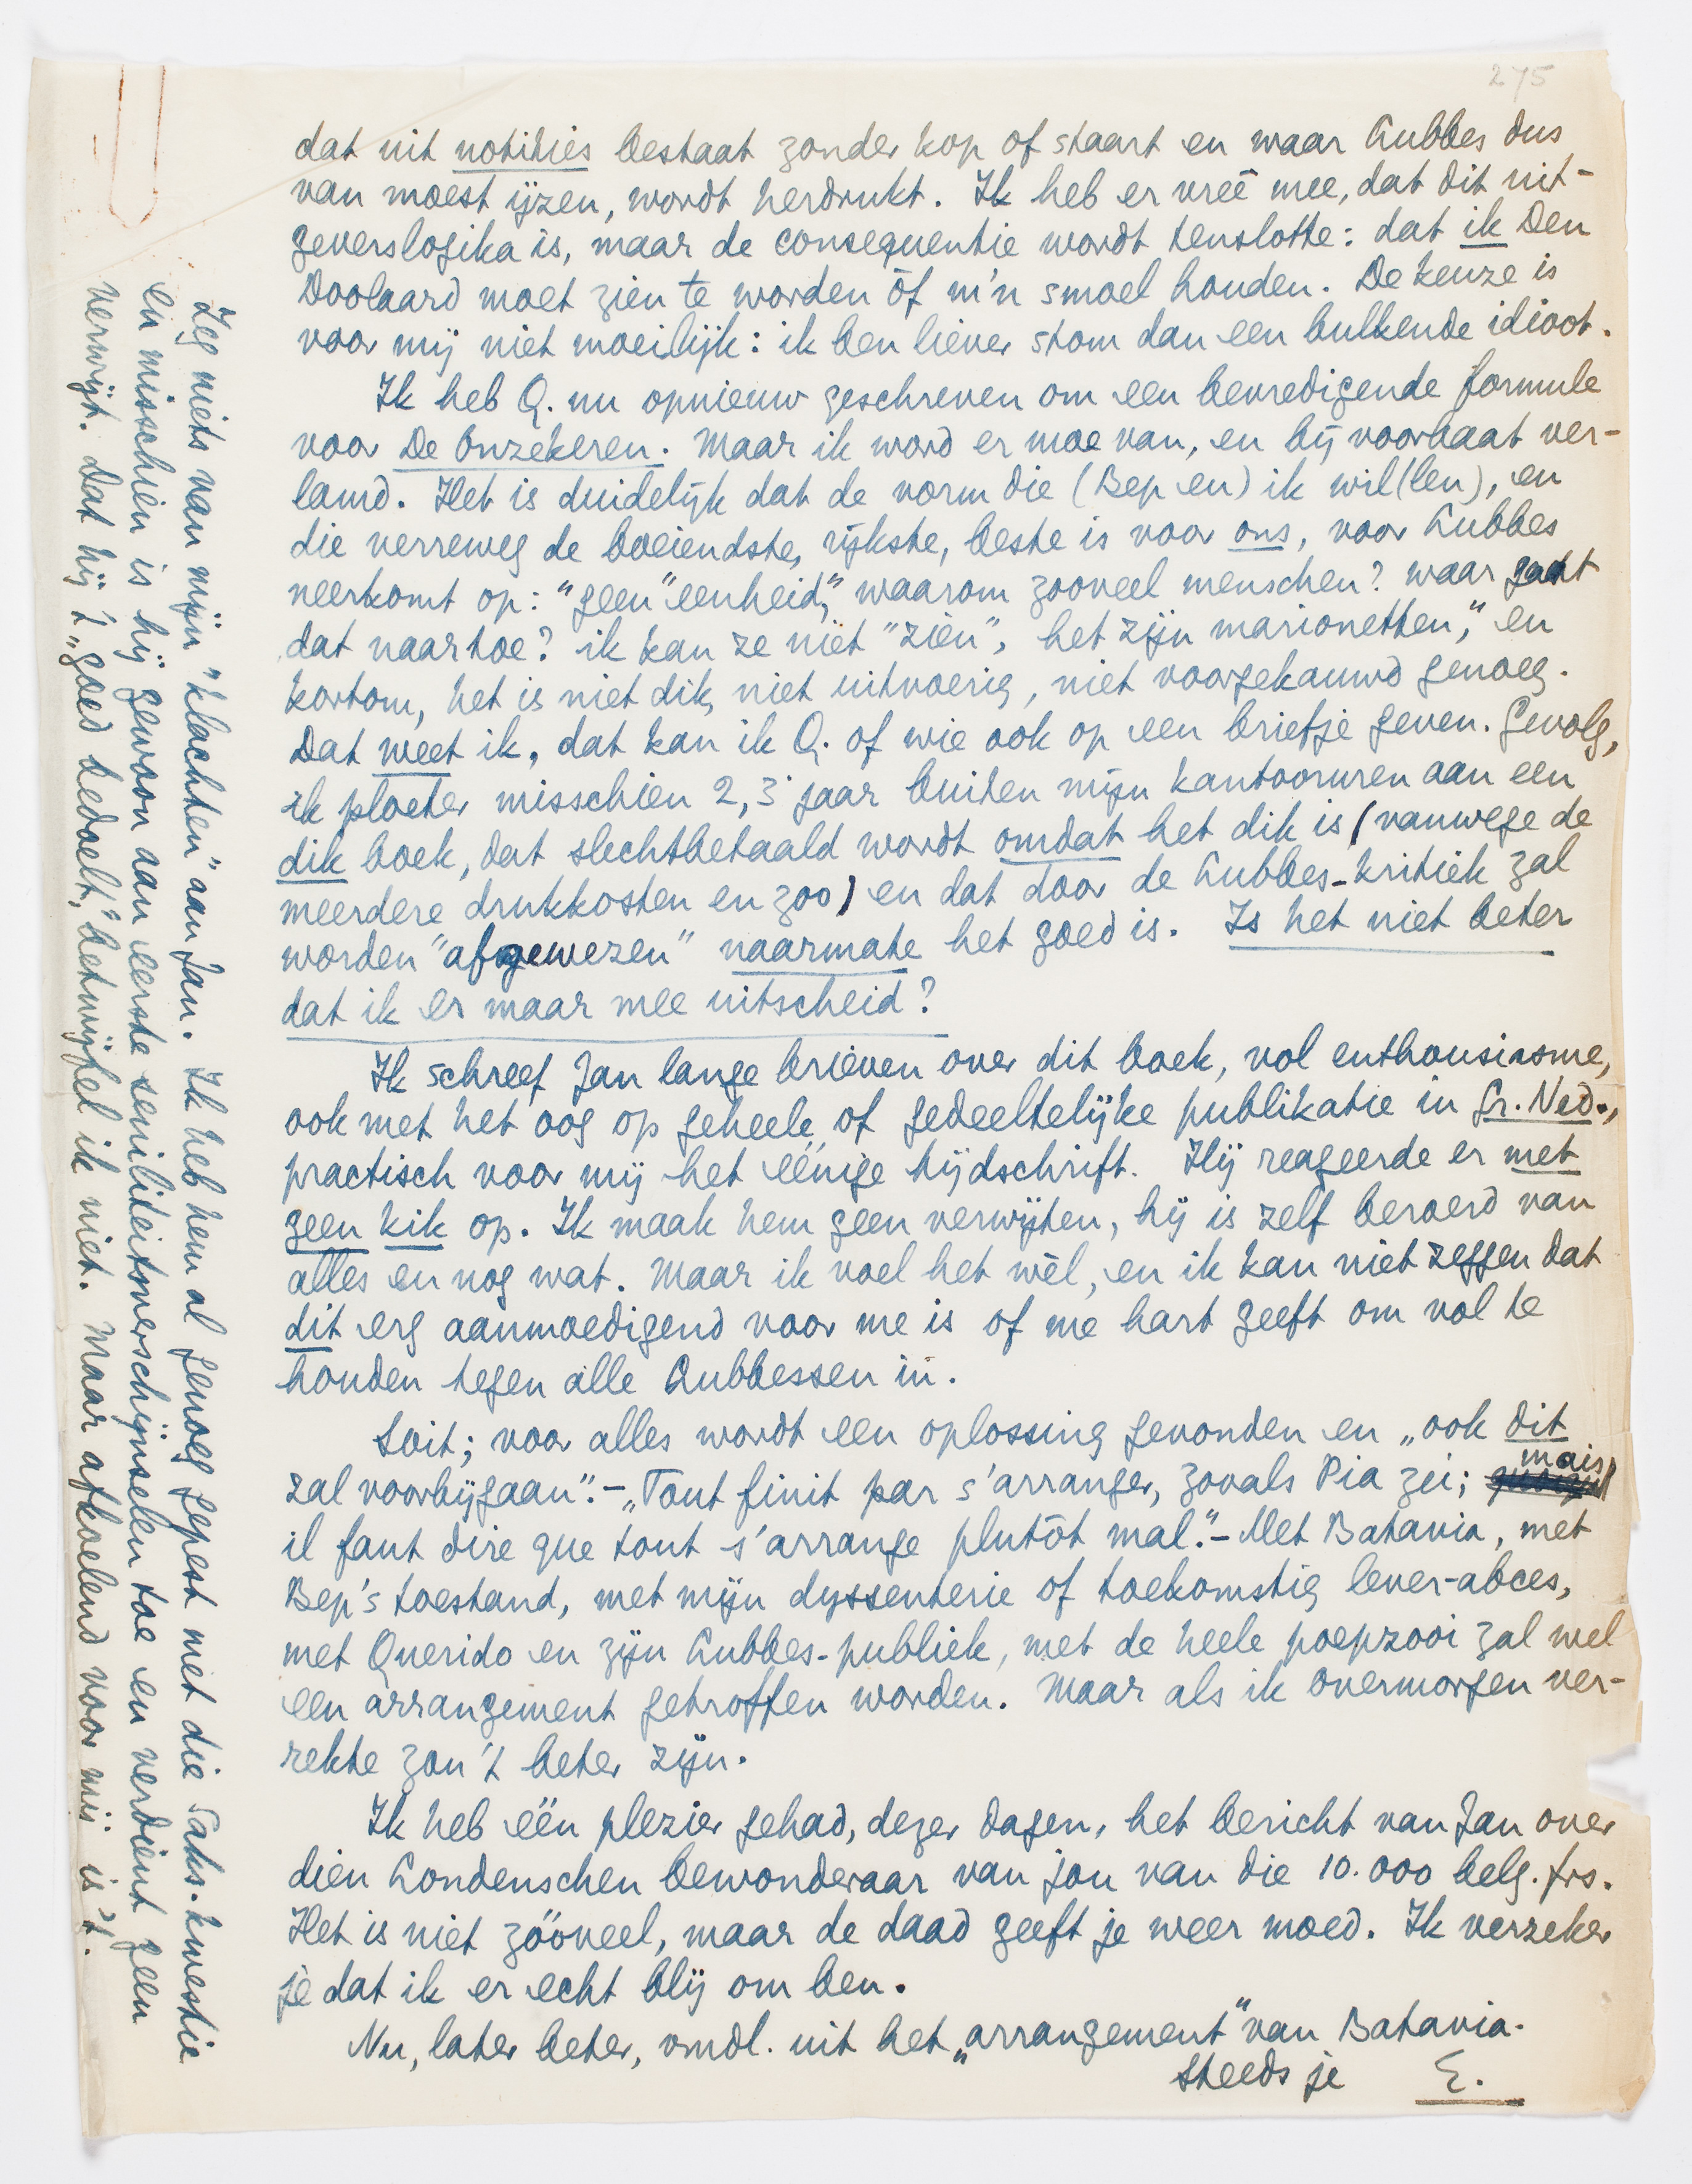 275
dat uit notities bestaat zonder kop of staart en waar Lubbes dus
van moest ijzen, wordt herdrukt. Ik heb er vreê mee, dat dit uit-
geverslogika is, maar de consequentie wordt tenslotte: dat ik Den
Doolaard moet zien te worden óf m'n smoel houden. De keuze is
voor mij niet moeilijk: ik ben liever stom dan een bulkende idioot.
Ik heb Q. nu opnieuw geschreven om een bevredigende formule
voor De Onzekeren. Maar ik word er moe van, en bij voorbaat ver-
lamd. Het is duidelijk dat de vorm die (Bep en) ik wil(len), en
die verreweg de boeiendste, rijkste, beste is voor ons, voor Lubbes
neerkomt op: "geen "eenheid," waarom zooveel menschen? waar gaat
dat naartoe? ik kan ze niet "zien", het zijn marionetten," en
kortom, het is niet dik, niet uitvoerig, niet voorgekauwd genoeg.
Dat weet ik, dat kan ik Q. of wie ook op een briefje geven. Gevolg,
ik ploeter misschien 2, 3 jaar buiten mijn kantooruren aan een
dik boek, dat slechtbetaald wordt omdat het dik is (vanwege de
meerdere drukkosten en zoo) en dat door de Lubbes-kritiek zal
worden "afgewezen" naarmate het goed is. Is het niet beter
dat ik er maar mee uitscheid?
Ik schreef Jan lange brieven over dit boek, vol enthousiasme,
ook met het oog op geheele of gedeeltelijke publikatie in Gr. Ned.,
practisch voor mij het eênige tijdschrift. Hij reageerde er met
geen kik op. Ik maak hem geen verwijten, hij is zelf beroerd van
alles en nog wat. Maar ik voel het wèl, en ik kan niet zeggen dat
dit erg aanmoedigend voor me is of me hart geeft om vol te
houden tegen alle Lubbessen in.
Soit; voor alles wordt een oplossing gevonden en „ook dit
zal voorbijgaan". – „Tout finit par s'arranger, zooals Pia zei; mais
il faut dire que tout s'arrange plutôt mal." – Met Batavia, met
Bep's toestand, met mijn dyssenterie of toekomstig lever-abces,
met Querido en zijn Lubbes-publiek, met de heele poepzooi zal wel
een arrangement getroffen worden. Maar als ik overmorgen ver-
rekte zou 't beter zijn.
Ik heb één plezier gehad, dezer dagen, het bericht van Jan over
dien Londenschen bewonderaar van jou van die 10.000 belg. frs.
Het is niet zóóveel, maar de daad geeft je weer moed. Ik verzeker
je dat ik er echt blij om ben.
Nu, later beter, vmdl. uit het „arrangement" van Batavia.
Steeds je E.
Zeg niets van mijn "klachten" aan Jan. Ik heb hem al genoeg gepest met die Saks-kwestie
en misschien is hij gewoon aan eerste seniliteitsverschijnselen toe en verdient geen
verwijt. Dat hij 't „goed bedoelt," betwijfel ik niet. Maar afkoelend voor mij is 't.